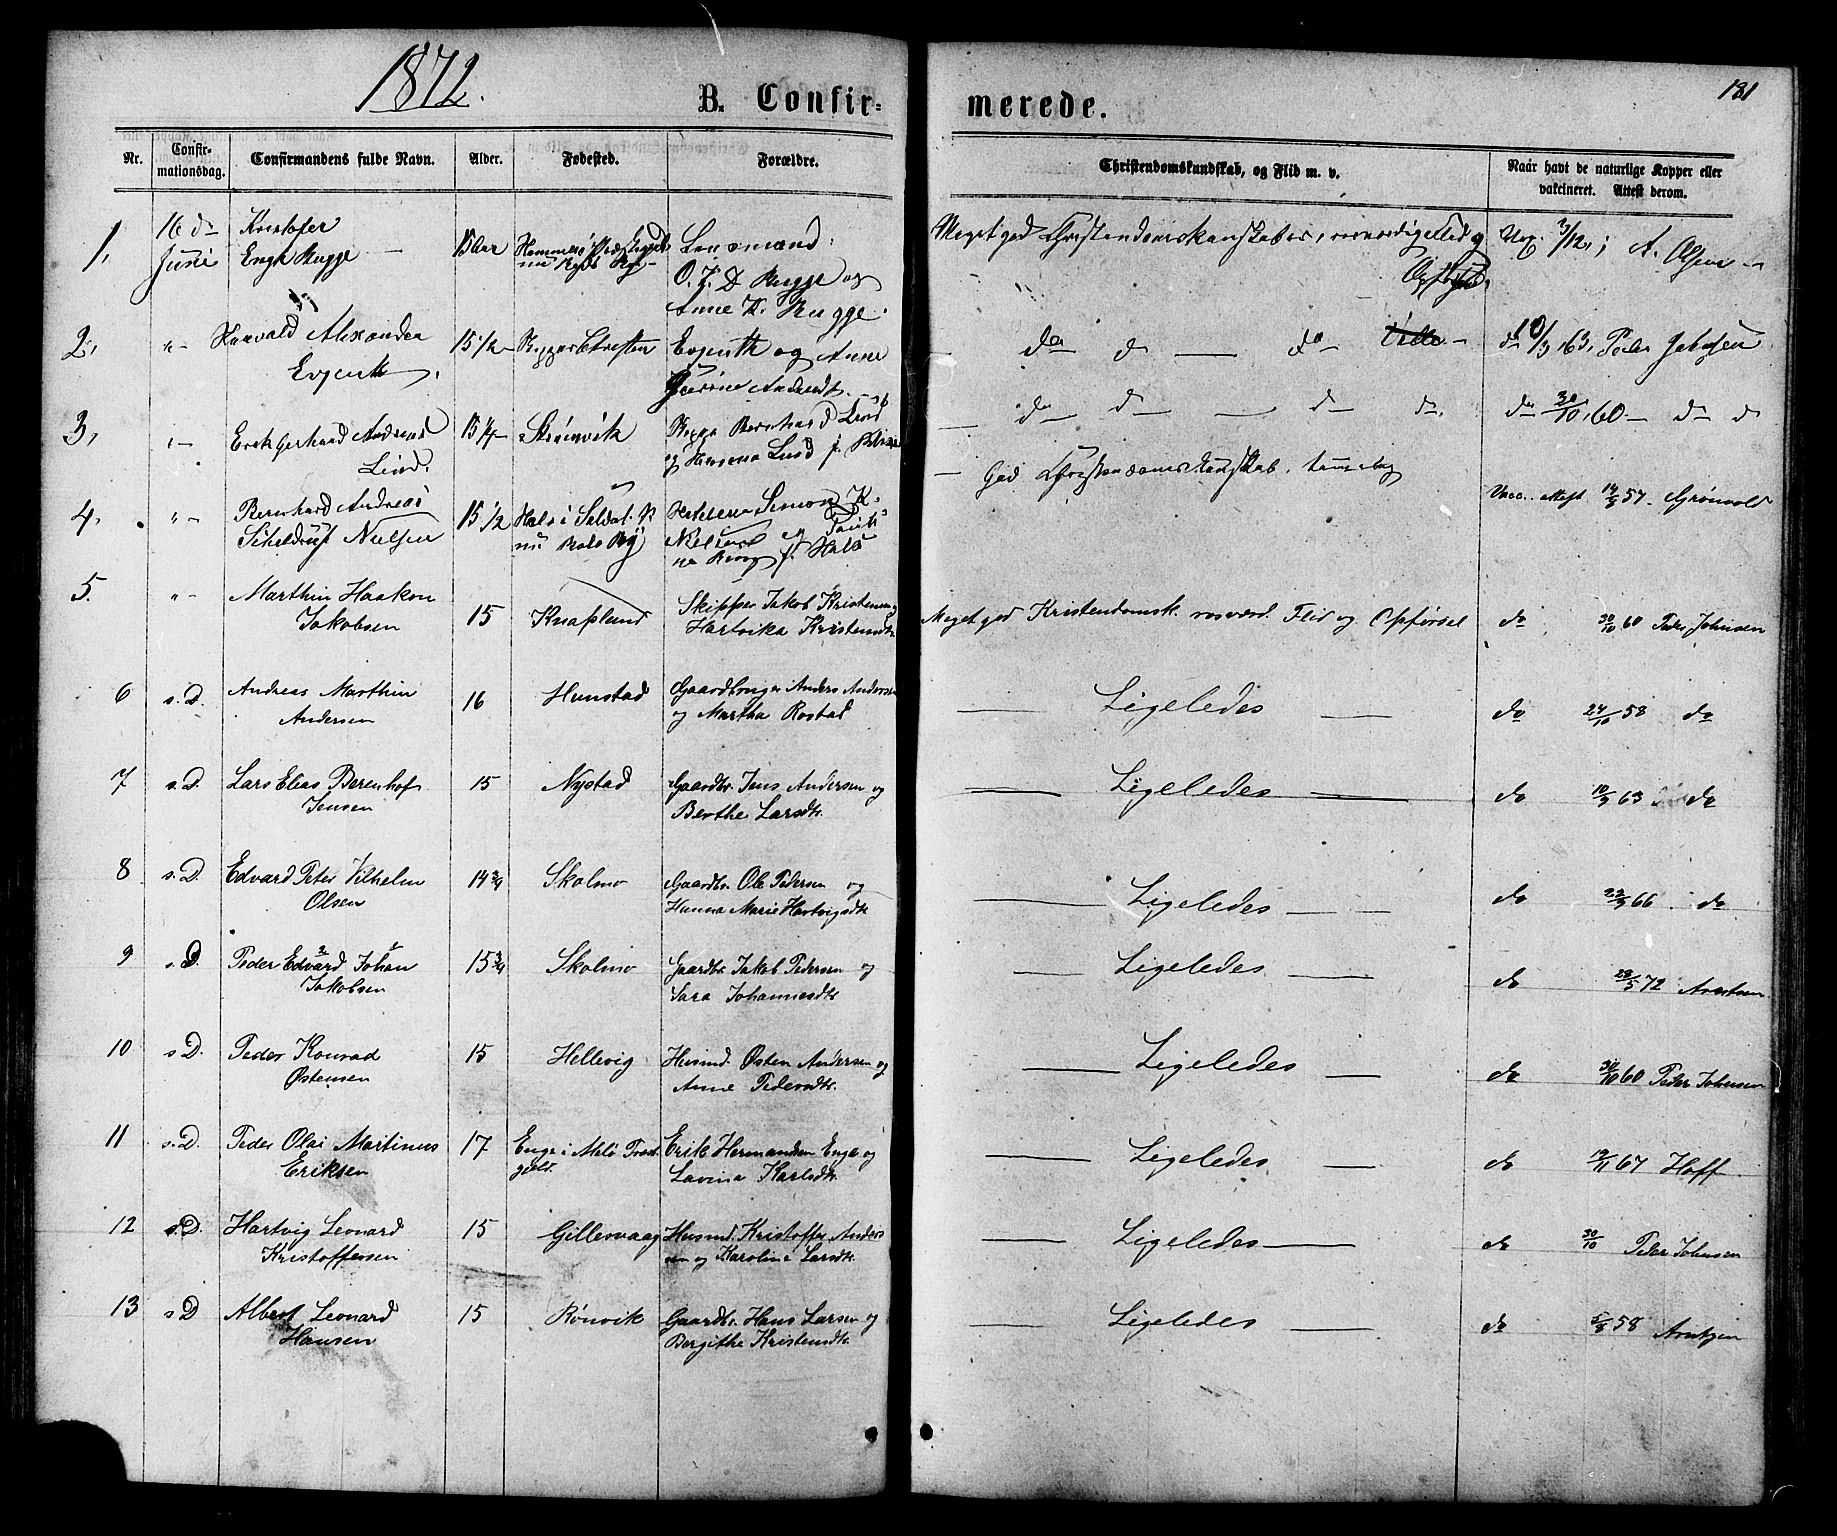 1872.
B. Confir-
merede.
181
Nr.
Confir-
mationsdag.
Confirmandens fulde Navn.
Alder.
Fødested.
Forældre.
Christendomskundskab, og Flid m. v.
Naar havt de naturlige Kopper eller
vakcineret. Attest derom.
1,
16 d
Juni
Kristofer
Engh Rugge
15 Aar
Lensmand
O. T. D Rugge og
Anne K. Rugge.
Meget god Christendomskundskab, og
Opførsel
A. Olsen
2,
Alexander
Evjenth
15 1/2
Evjenth og Anne
Andersdt.
do
63, Peder Johnsen
3,
Erek Gerhard Andreas
Lind.
15 1/4
Strømvik
Bernhard Lind
og
do
do 30/10 60 do
4,
Bernhard Andreas
Sheldrup Nielsen
15 1/2
Simon K
God Christendomskundskab,
Vacc. Attest 14/9 57. Grønvold
5.
Marthin Haakon
Jakobsen
15
Knaplund
Skipper Jakob Kristensen og
Hartvika Kristensdt.
Meget god Kristendomsk. rosværd. Flid og Opførsel
do 30/10 60 Peder Johnsen
6
s. D.
Andreas Marthin
Andersen
16
Hunstad
Gaardbruger Anders Andersen
og Martha Rostad
Ligeledes
do 24/10 58 do
7
s. D.
Lars Elias Berenhof
Jensen
15
Nystad
Gaardbr. Jens Andersen og
Berthe Larsdt.
Ligeledes
do 10/9 63 do
8
s. D.
Edvard Peter Vilhelm
Olsen
14 3/4
Skolmo
Gaardbr. Ole Pedersen og
Hanna Marie Hartvigsdt.
Ligeledes
do 66 do
9
s. D.
Peder Edvard Johan
Jakobsen
15 3/4
Skolmo
Gaardbr. Jakob Pedersen og
Sara Johannesdt.
Ligeledes
do 28/5 72 Arntsen
10
s D.
Peder Konrad
Østensen
15
Hellevig
Husmd. Østen Andersen og
Anne Pedersdt.
Ligeledes
do 30/10 60 Peder Johnsen
11
s. D.
Peder Olai Martinus
Eriksen
17
Enge i Melø Præst
gield.
Erik Hermansen Enge og
Lavina Karlsdt.
Ligeledes
do 19/11 67 Hoff
12
s. D.
Hartvig Leonard
Kristoffersen
15
Gillesvaag
Husmd. Kristoffer Anders
sen og Karoline Larsdt.
Ligeledes
do 30/10 Peder Johnsen
13
s D
Albert Leonard
Hansen
15
Rønvik
Gaardbr. Hans Larsen og
Bergithe Kristensdt.
Ligeledes
do 58 Arntzen